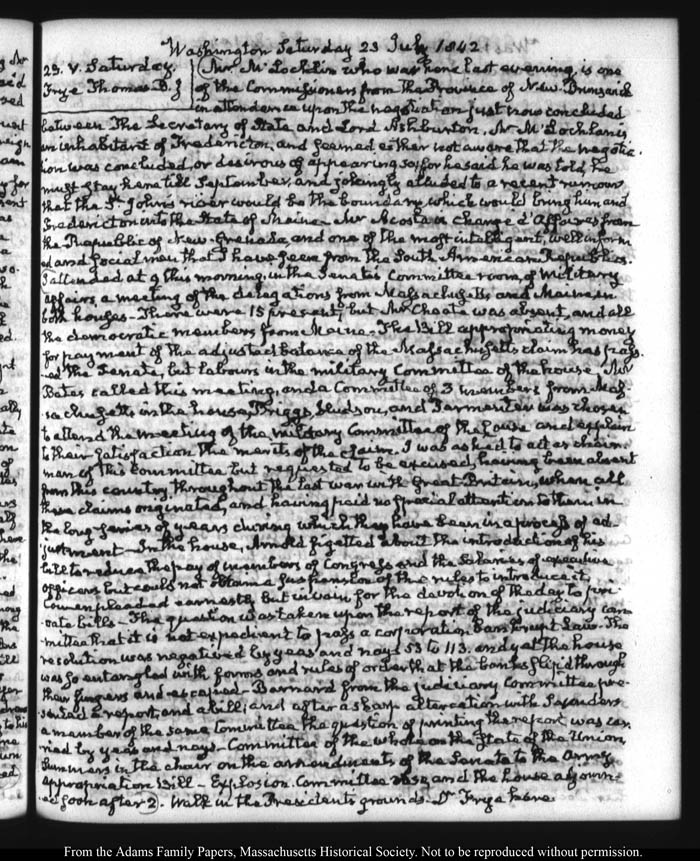 Washington Saturday 23 July 1842
23. V. Saturday.
Frye Thomas B. J
Mr. McLochlin who was here last evening, is one
of the Commissioners from the Province of New-Brunswick
in attendance upon the negotiation just now concluded
between The Secretary of State and Lord Ashburton. Mr McLochlan is
an inhabitant of Fredericton, and seemed either not aware that the negotia-
tion was concluded, or desirous of appearing so; for he said he was told, he
must stay here till September, and jokingly alluded to a recent rumour
that the St. John's river would be the boundary, which would bring him and
Fredericton into the State of Maine. Mr Acosta is Chargé d'Affaires from
the Republic of New-Grenada, and one of the most intelligent, well inform-
ed and social men that I have seen from the South American Republics.
I attended at 9 this morning, in the Senate's Committee room, of Military
affairs, a meeting of the delegations from Massachusetts and Maine, in
both houses. There were 15 present, but Mr Choate was absent, and all
the democratic members from Maine. The Bill appropriating money
for payment of the adjusted balance of the Massachusetts claim has pass-
ed the Senate, but labours in the military Committee of the house. Mr
Bates called this meeting, and a Committee of 3 members from Mas-
sachusetts in the house, Briggs, Hudson, and Parmenter was chosen
to attend the meeting of the military Committee of the house and explain
to their satisfaction the merits of the claim. I was asked to act as chair-
man of this committee but requested to be excused, having been absent
from this country, throughout the last war with Great-Britain, when all
these claims originated, and having paid no special attention to them in
the long series of years during which they have been in a process of ad-
justment. In the house, Arnold figetted about the introduction of his
bill to reduce the pay of members of Congress and the Salaries of executive
officers but could not obtain a suspension of the rules to introduce it.
Cowen pleaded earnestly but in vain for the devotion of the day to pri-
vate bills. The question was taken upon the report of the judiciary com-
mittee that it is not expedient to pass a corporation Bankrupt Law. The
resolution was negatived by yeas and nays 53 to 113. and yet the house
was so entangled with forms and rules of order that the banks slip'd through
their fingers and escaped. Barnard from the judiciary Committee pre-
sented a report, and a bill; and after a sharp altercation with Saunders
a member of the same Committee the question of printing the report was car-
ried by yeas and nays. Committee of the whole on the State of the Union,
Summers in the chair on the amendments of the Senate to the Army
appropriation Bill. Explosion. Committee rose, and the house adjourn-
ed soon after 2. Walk in the President's grounds. Dr Frye here.
From the Adams Family Papers, Massachusetts Historical Society. Not to be reproduced without permission.